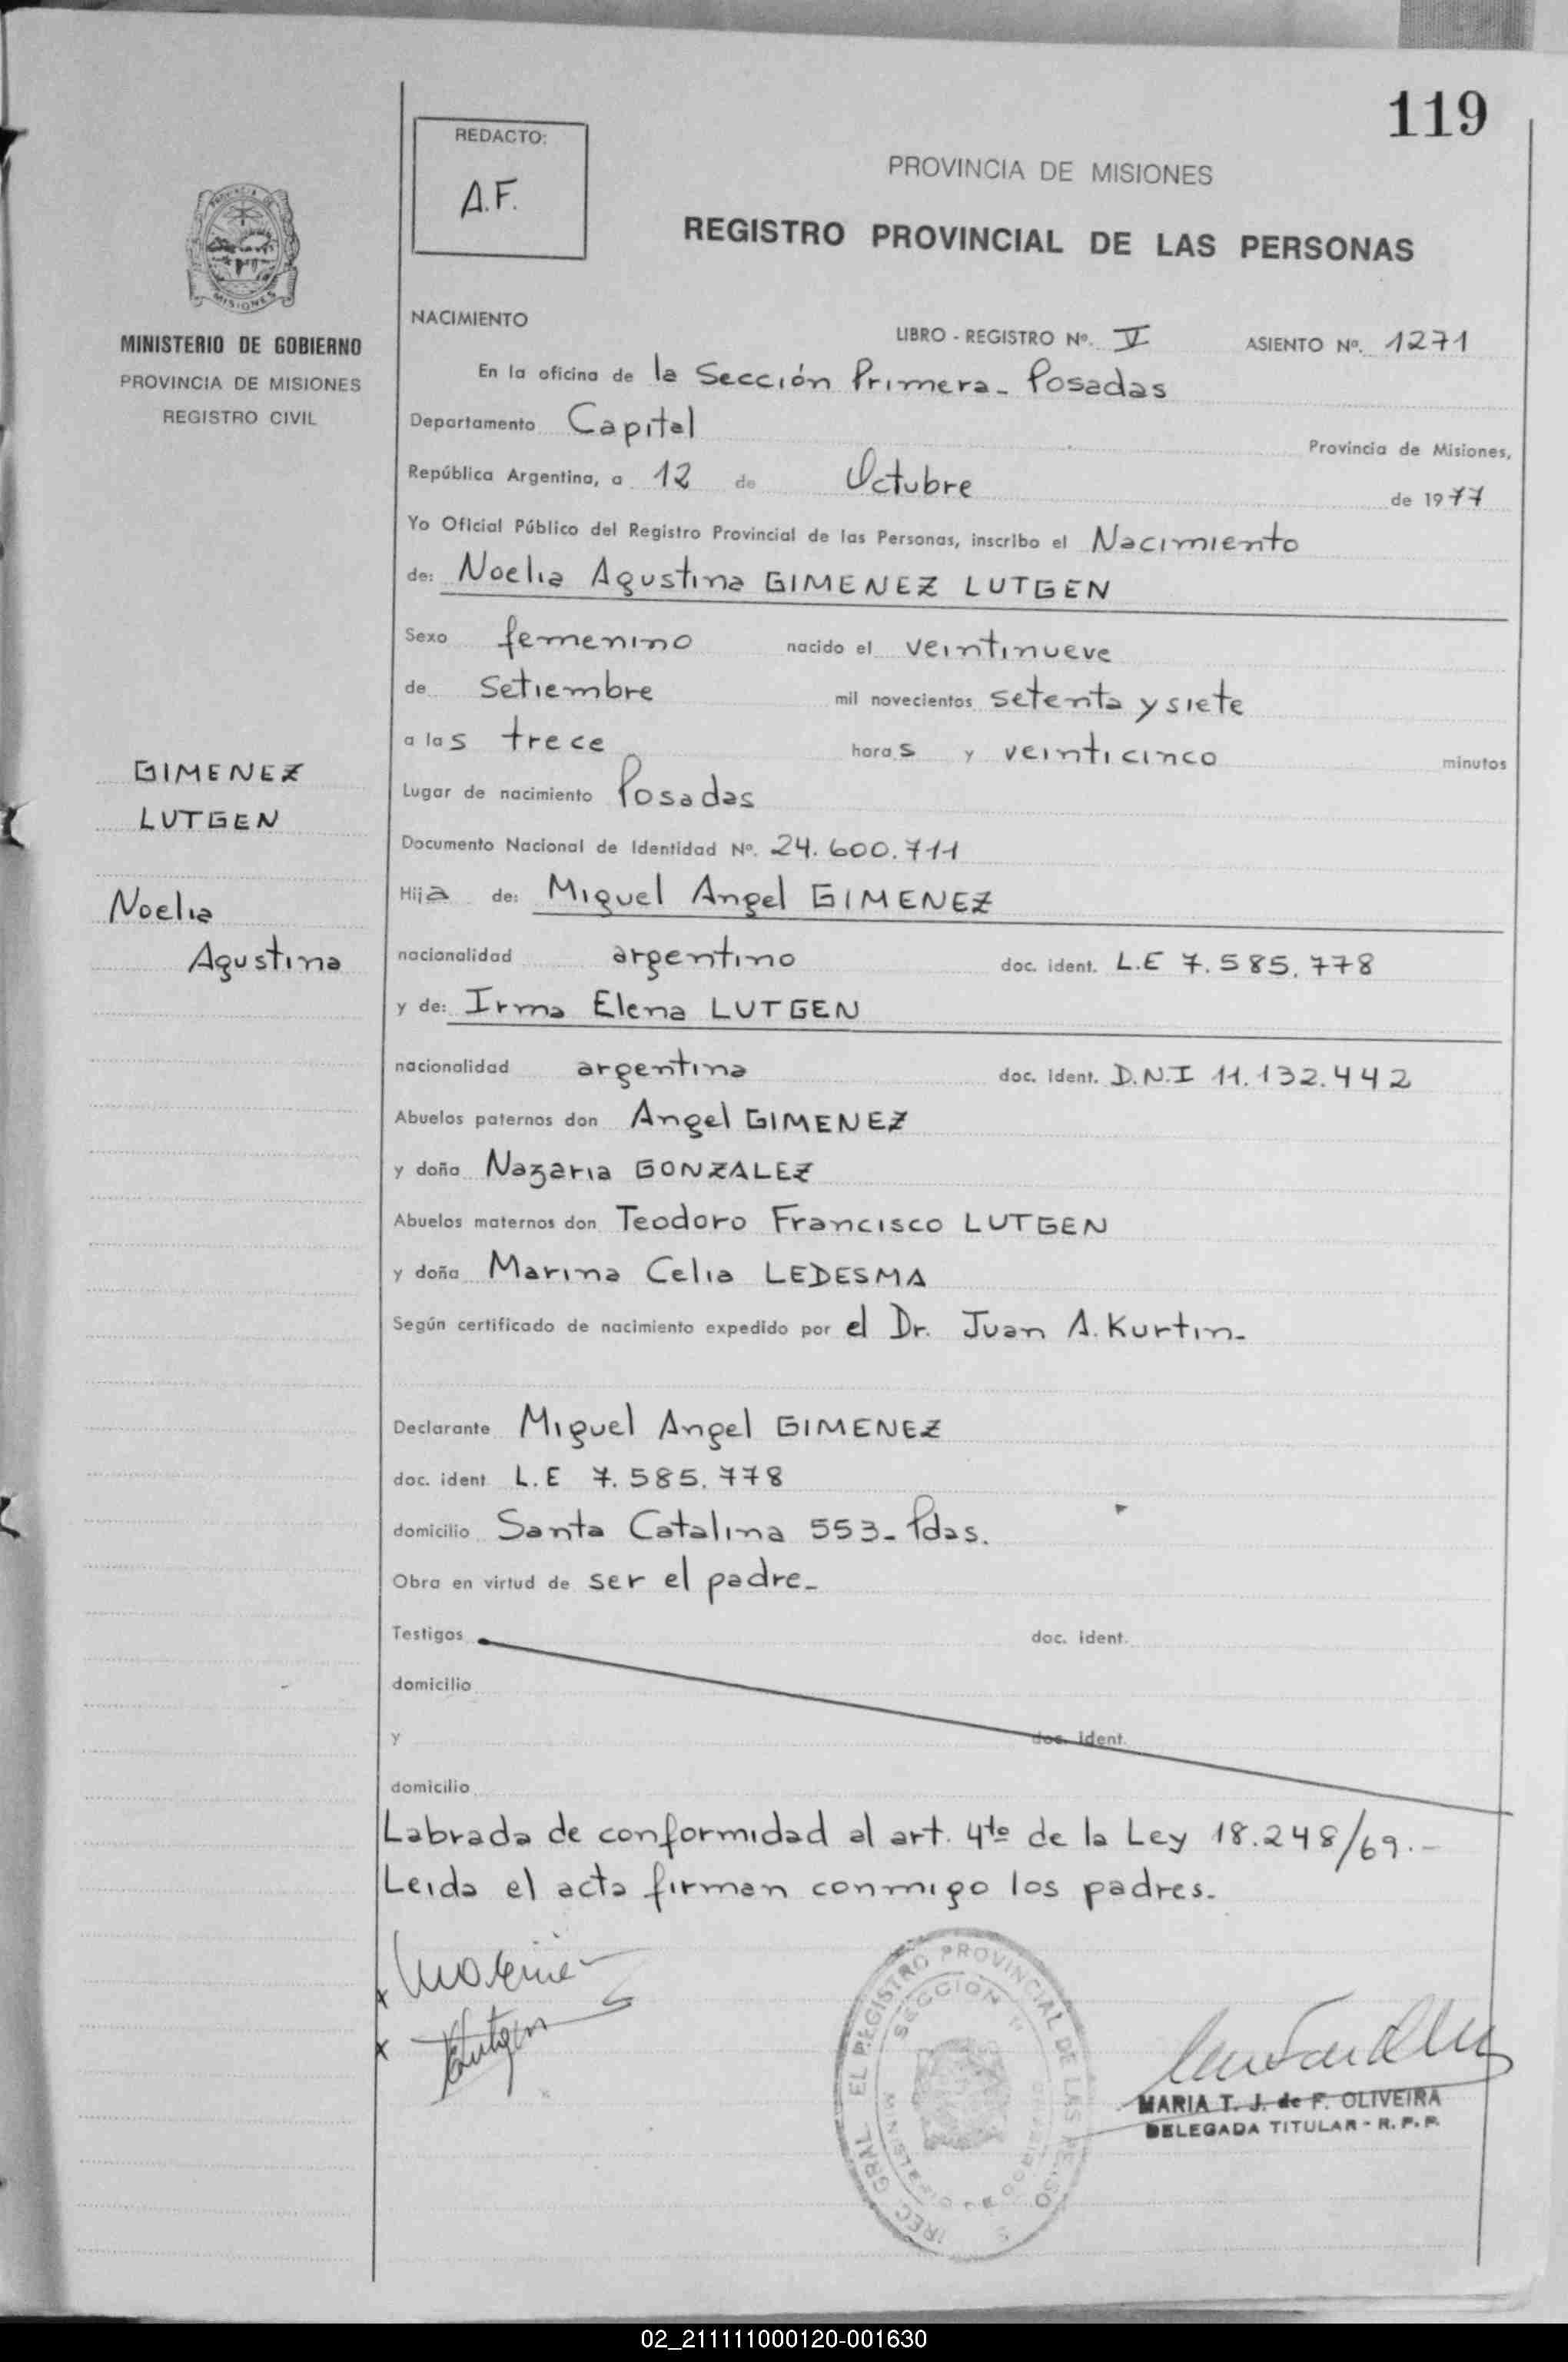 119
REDACTO:
A.F.
PROVINCIA DE MISIONES
REGISTRO PROVINCIAL DE LAS PERSONAS
MISIONES
MINISTERIO DE GOBIERNO
PROVINCIA DE MISIONES
REGISTRO CIVIL
NACIMIENTO
LIBRO - REGISTRO Nº. V ASIENTO Nº. 1271
En la oficina de la Sección Primera - Posadas
Departamento Capital Provincia de Misiones,
República Argentina, a 12 de Octubre de 1977
Yo Oficial Público del Registro Provincial de las Personas, inscribo el Nacimiento
de: Noelia Agustina GIMENEZ LUTGEN
Sexo femenino nacido el veintinueve
de Setiembre mil novecientos setenta y siete
a las trece horas y veinticinco minutos
GIMENEZ
LUTGEN
Noelia
Agustina
Lugar de nacimiento Posadas
Documento Nacional de Identidad Nº. 24.600.711
Hija de: Miguel Angel GIMENEZ
nacionalidad argentino doc. ident. L.E 7.585.778
y de: Irma Elena LUTGEN
nacionalidad argentina doc. ident. D.N.I 11.132.442
Abuelos paternos don Angel GIMENEZ
y doña Nazaria GONZALEZ
Abuelos maternos don Teodoro Francisco LUTGEN
y doña Marina Celia LEDESMA
Según certificado de nacimiento expedido por el Dr. Juan A. Kurtin-
Declarante Miguel Angel GIMENEZ
doc. ident L.E 7.585.778
domicilio Santa Catalina 553- Pdas.
Obra en virtud de ser el padre-
Testigos doc. ident.
domicilio
y doc. ident.
domicilio
Labrada de conformidad al art. 4to de la Ley 18.248/69.-
Leida el acta firman conmigo los padres.
EL REGISTRO PROVINCIAL DE LAS
SECCION
MARIA T. J. de F. OLIVEIRA
DELEGADA TITULAR - R. P. P.
02_211111000120-001630